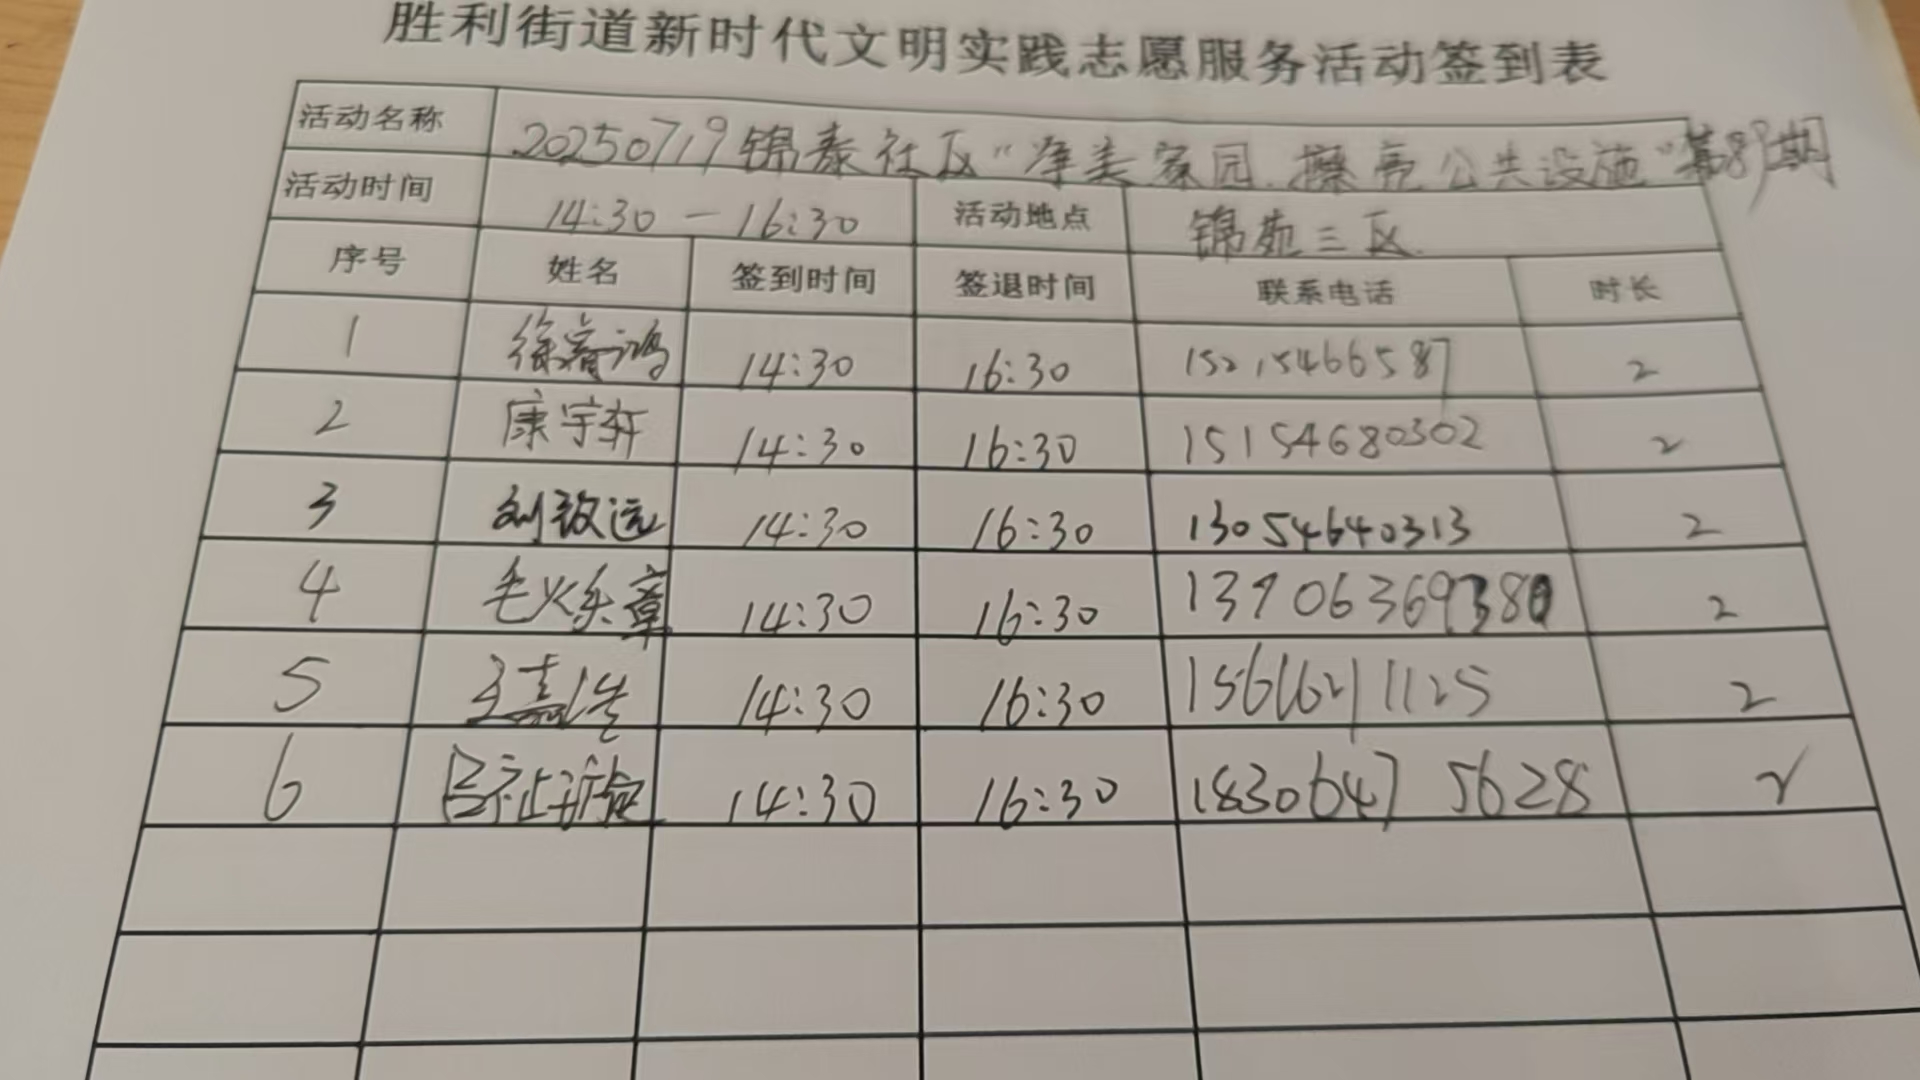 胜利街道新时代文明实践志愿服务活动签到表
活动名称 20250719锦泰社区“净美家园.擦亮公共设施”第89期
活动时间 14:30 — 16:30 活动地点 锦苑三区
序号 姓名 签到时间 签退时间 联系电话 时长
1 徐睿鸿 14:30 16:30 15215466587 2
2 康宇轩 14:30 16:30 15154680302 2
3 刘致远 14:30 16:30 13054640313 2
4 毛烁章 14:30 16:30 2
5 王嘉浩 14:30 16:30 2
6 14:30 16:30 18306475628 2